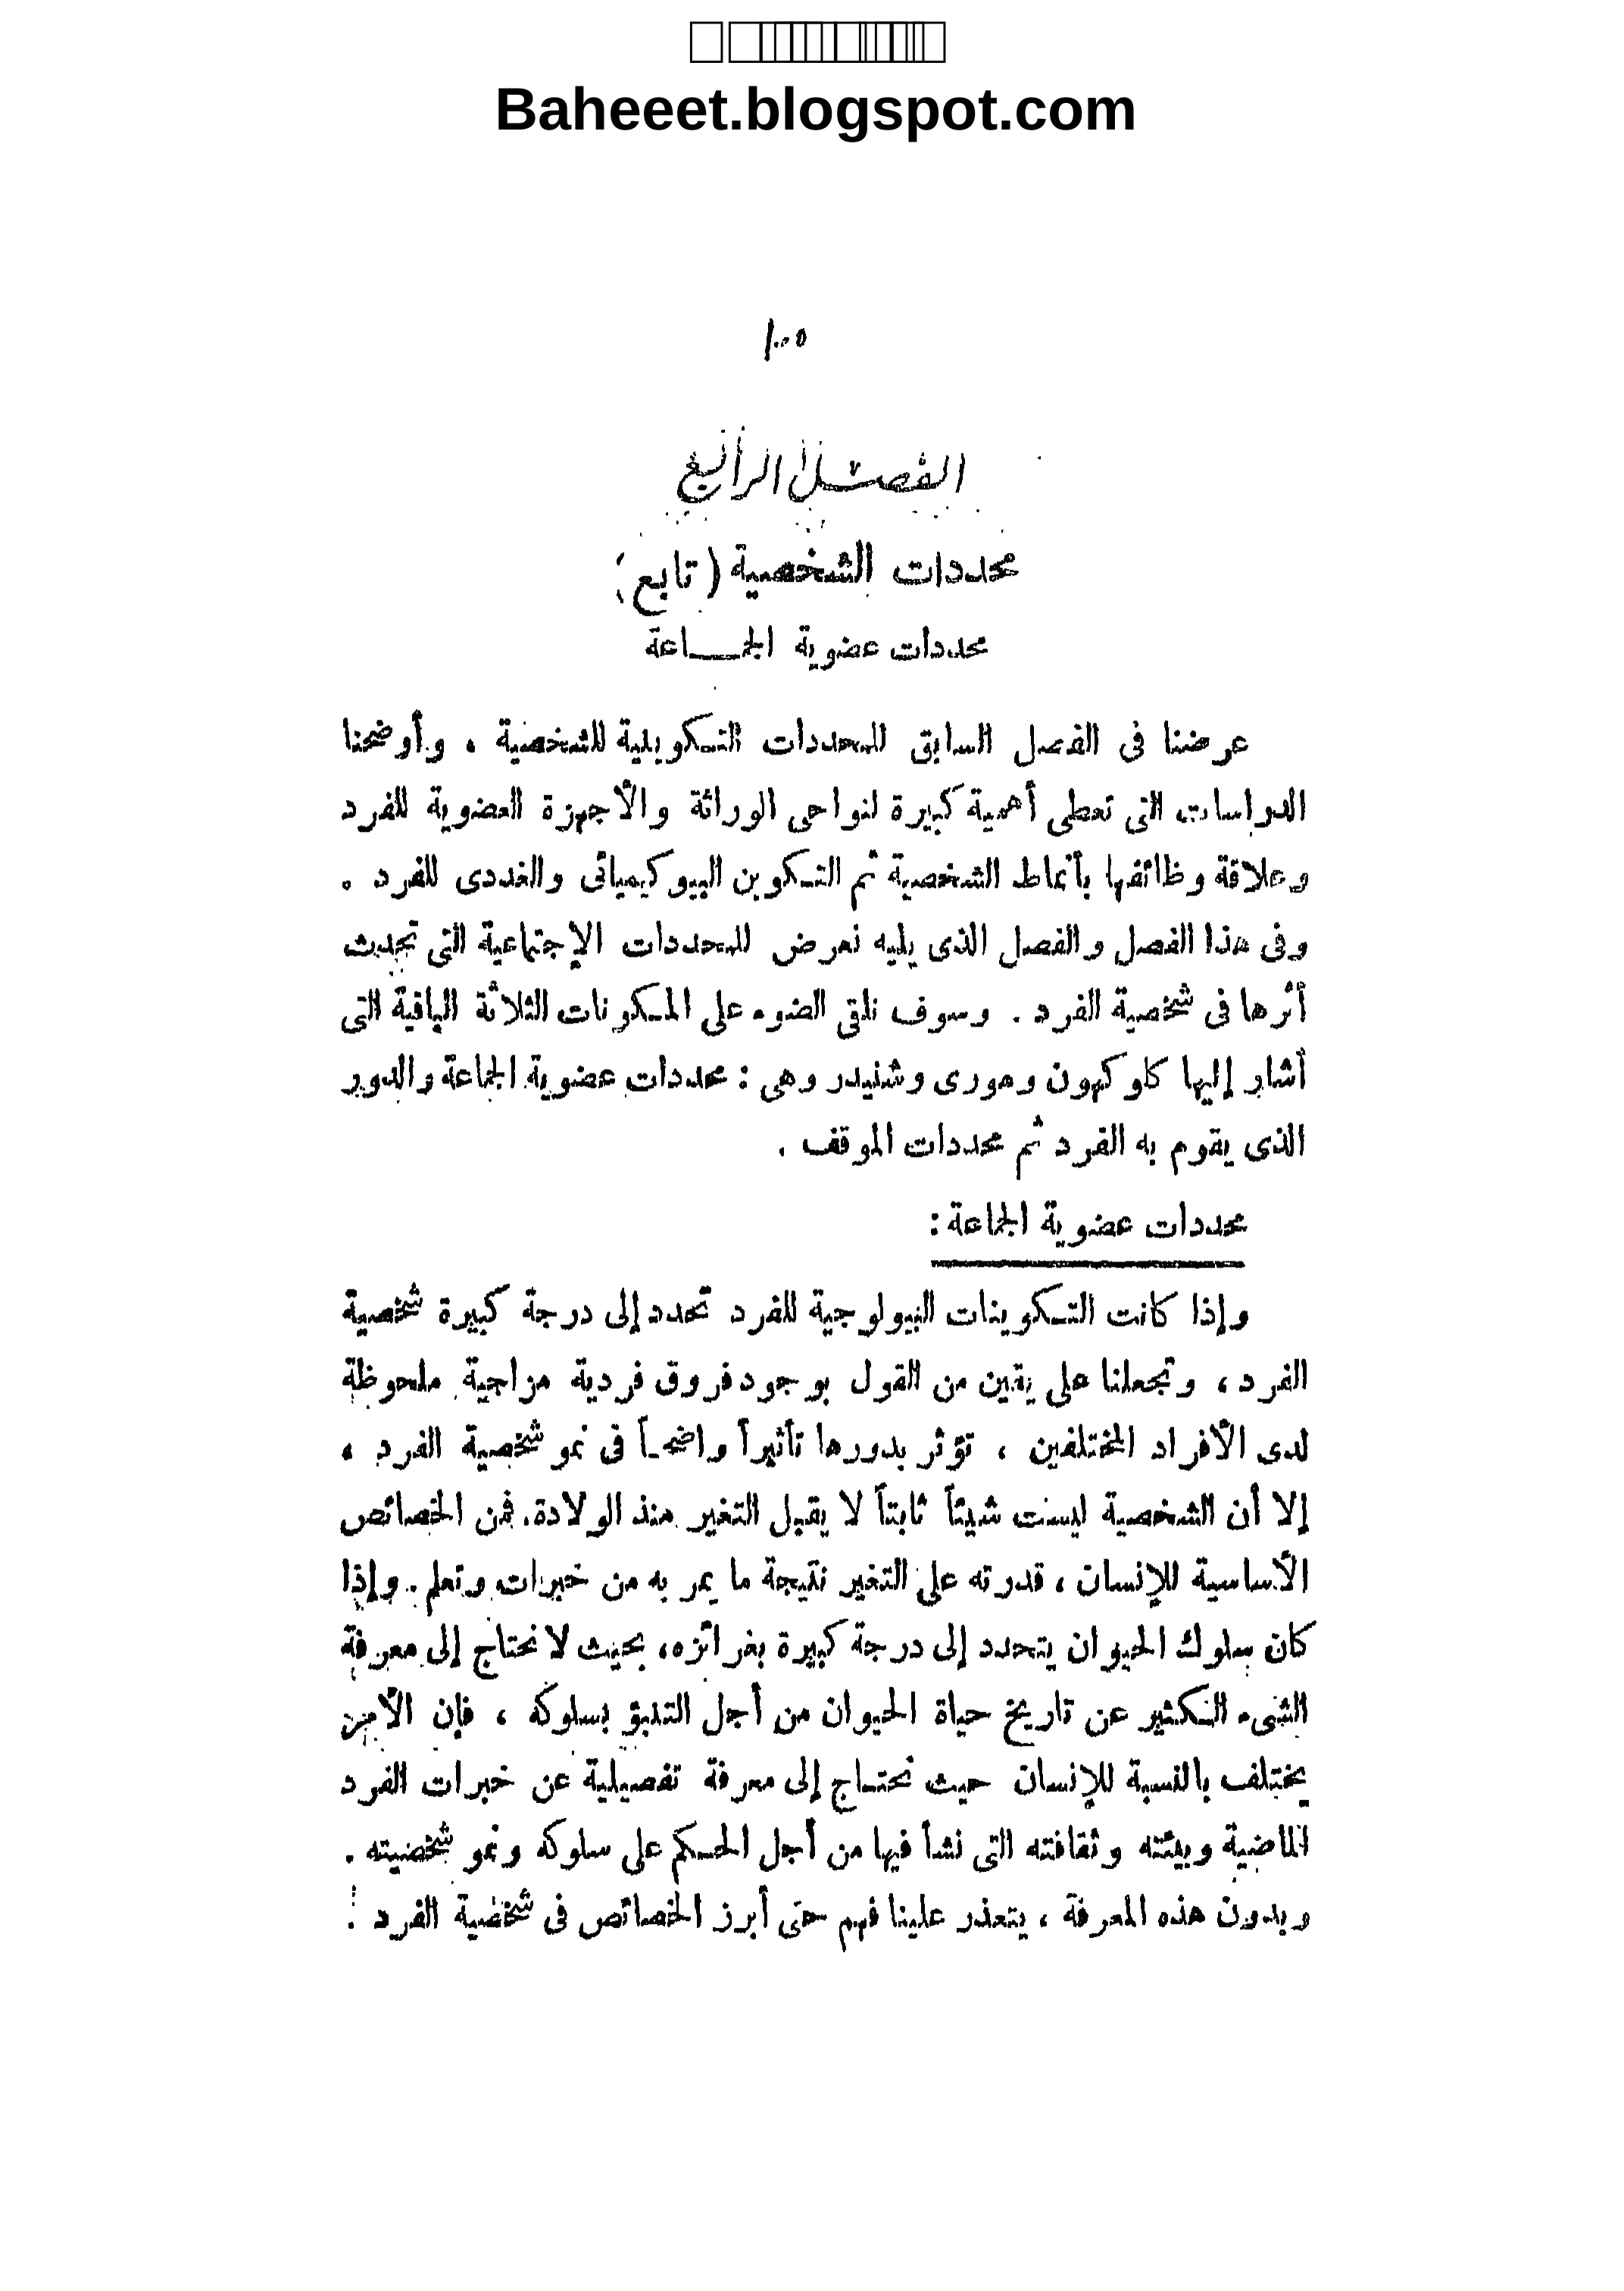 Baheeet.blogspot.com
١٠٥
الفصل الرابع
محددات الشخصية ( تابع )
محددات عضوية الجماعة
عرضنا فى الفصل السابق للمحددات التكوينية للشخصية ، وأوضحنا
الدراسات التى تعطى أهمية كبيرة لنواحى الوراثة والأجهزة العضوية للفرد
وعلاقة وظائفها بأنماط الشخصية ثم التكوين البيوكيميائى والغددى للفرد .
وفى هذا الفصل والفصل الذى يليه نعرض للمحددات الإجتماعية التى تحدث
أثرها فى شخصية الفرد . وسوف نلقى الضوء على المكونات الثلاثة الباقية التى
أشار إليها كلوكهون ومورى وشنيدر وهى : محددات عضوية الجماعة والدور
الذى يقوم به الفرد ثم محددات الموقف .
محددات عضوية الجماعة :
وإذا كانت التكوينات البيولوجية للفرد تحدد إلى درجة كبيرة شخصية
الفرد ، وتجعلنا على يقين من القول بوجود فروق فردية مزاجية ملحوظة
لدى الأفراد المختلفين ، تؤثر بدورها تأثيراً واضحاً فى نمو شخصية الفرد ،
إلا أن الشخصية ليست شيئاً ثابتاً لا يقبل التغير منذ الولادة. فمن الخصائص
الأساسية للإنسان ، قدرته على التغير نتيجة ما يمر به من خبرات وتعلم . وإذا
كان سلوك الحيوان يتحدد إلى درجة كبيرة بغرائزه، بحيث لا نحتاج إلى معرفة
الشىء الكثير عن تاريخ حياة الحيوان من أجل التنبؤ بسلوكه ، فإن الأمر
يختلف بالنسبة للإنسان حيث نحتاج إلى معرفة تفصيلية عن خبرات الفرد
الماضية وبيئته وثقافته التى نشأ فيها من أجل الحكم على سلوكه ونمو شخصيته .
وبدون هذه المعرفة ، يتعذر علينا فهم حتى أبرز الخصائص فى شخصية الفرد .